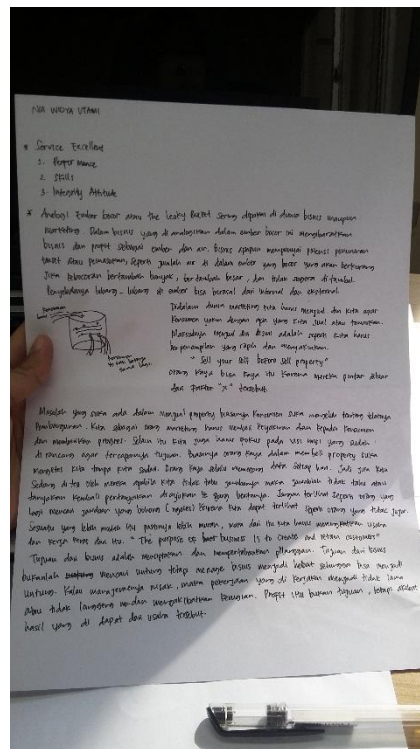 NIA WIDYA UTAMI
* Service Excellent
1. Performance
2. Skills
3. Integrity Attitude
* Analogi Ember bocor atau the leaky Bucket sering dipakai di dunia bisnis maupun
marketing. Dalam bisnis yang di analogikan dalam ember bocor ini mengibaratkan
bisnis dan profit sebagai ember dan air. bisnis apapun mempunyai potensi penurunan
target atau pemasaran, seperti jumlah air di dalam ember yang bocor yang akan berkurang
Jika kebocoran bertambah banyak, bertambah besar, dan tidak segera ditambal.
Penyebabnya lubang-lubang di ember bisa berasal dari internal dan eksternal.
Didalam dunia marketing kita harus menjual diri kita agar
konsumen yakin dengan apa yang kita jual atau tawarkan.
Maksudnya menjual diri disini adalah seperti kita harus
berpenampilan yang rapih dan meyakinkan.
" Sell your self before sell property"
orang kaya bisa kaya itu karena mereka pintar
dan faktor "x" tersebut.
Masalah yang suka ada dalam menjual property biasanya konsumen suka mengeluh tentang
Pembangunan. Kita sebagai orang marketing harus kepada konsumen
dan progres. Selain itu kita juga harus fokus pada visi misi yang sudah
di rancang agar tercapainya tujuan. Biasanya orang kaya dalam membeli property suka
mengetes kita tanpa kita sadar. Orang kaya selalu memegang data setiap hari. Jadi jika kita
Sedang di tes oleh mereka apabila kita tidak tahu jawabannya maka jawablah tidak tahu atau
tanyakan kembali pertanyaan yang bertanya. Jangan terlihat seperti orang yang
lagi mencari jawaban yang bohong karena kita dapat terlihat seperti orang yang tidak jujur.
Sesuatu yang lebih mudah itu pastinya lebih murah, maka dari itu kita harus meningkatkan usaha
dan kerja keras dan itu. " The purpose of business is to create and retain customers"
Tujuan dari bisnis adalah menciptakan dan mempertahankan pelanggan. Tujuan dari bisnis
bukanlah mencari untung tetapi menage bisnis menjadi hebat sehingga bisa menjadi
untung. Kalau managemennya rusak, maka pekerjaan yang di kerjakan menjadi tidak lama
atau tidak langsung dan mengakibatkan kerugian. Profit itu bukan tujuan, tetapi akibat
hasil yang di dapat dari usaha tersebut.